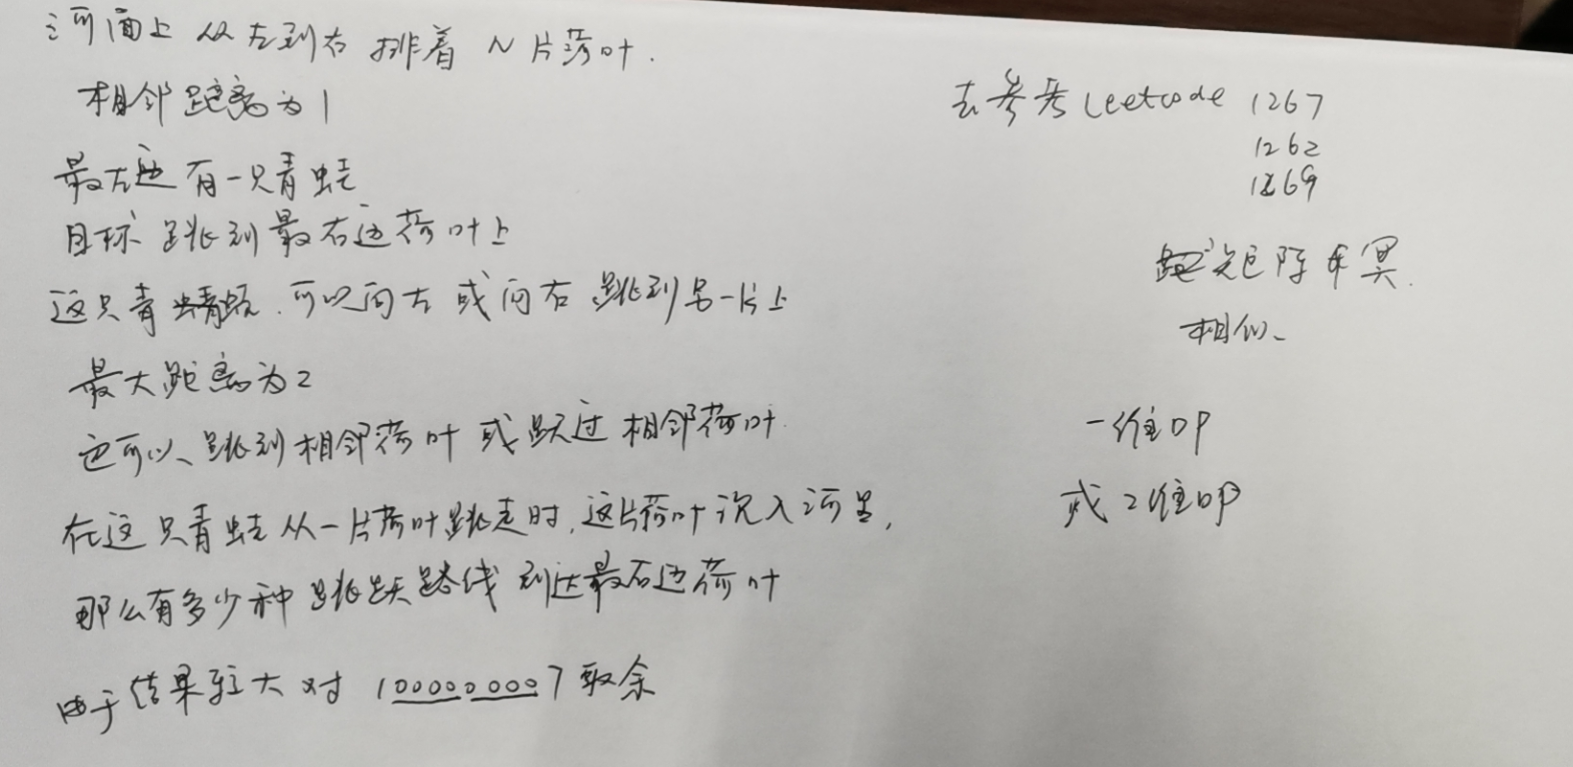 河面上从左到右排着N片荷叶.
相邻距离为1
最左边有一只青蛙
目标跳到最右边荷叶上
这只青蛙.可以向左或向右跳到另一片上
最大距离为2
它可以、跳到相邻荷叶或跃过相邻荷叶.
在这只青蛙从一片荷叶跳走时,这片荷叶沉入河里,
那么有多少种跳跃路线到达最右边荷叶
由于结果较大对1000000007取余
去参考Leetcode 1267
1262
1269
矩阵幂.
相似、
一维DP
或2维DP